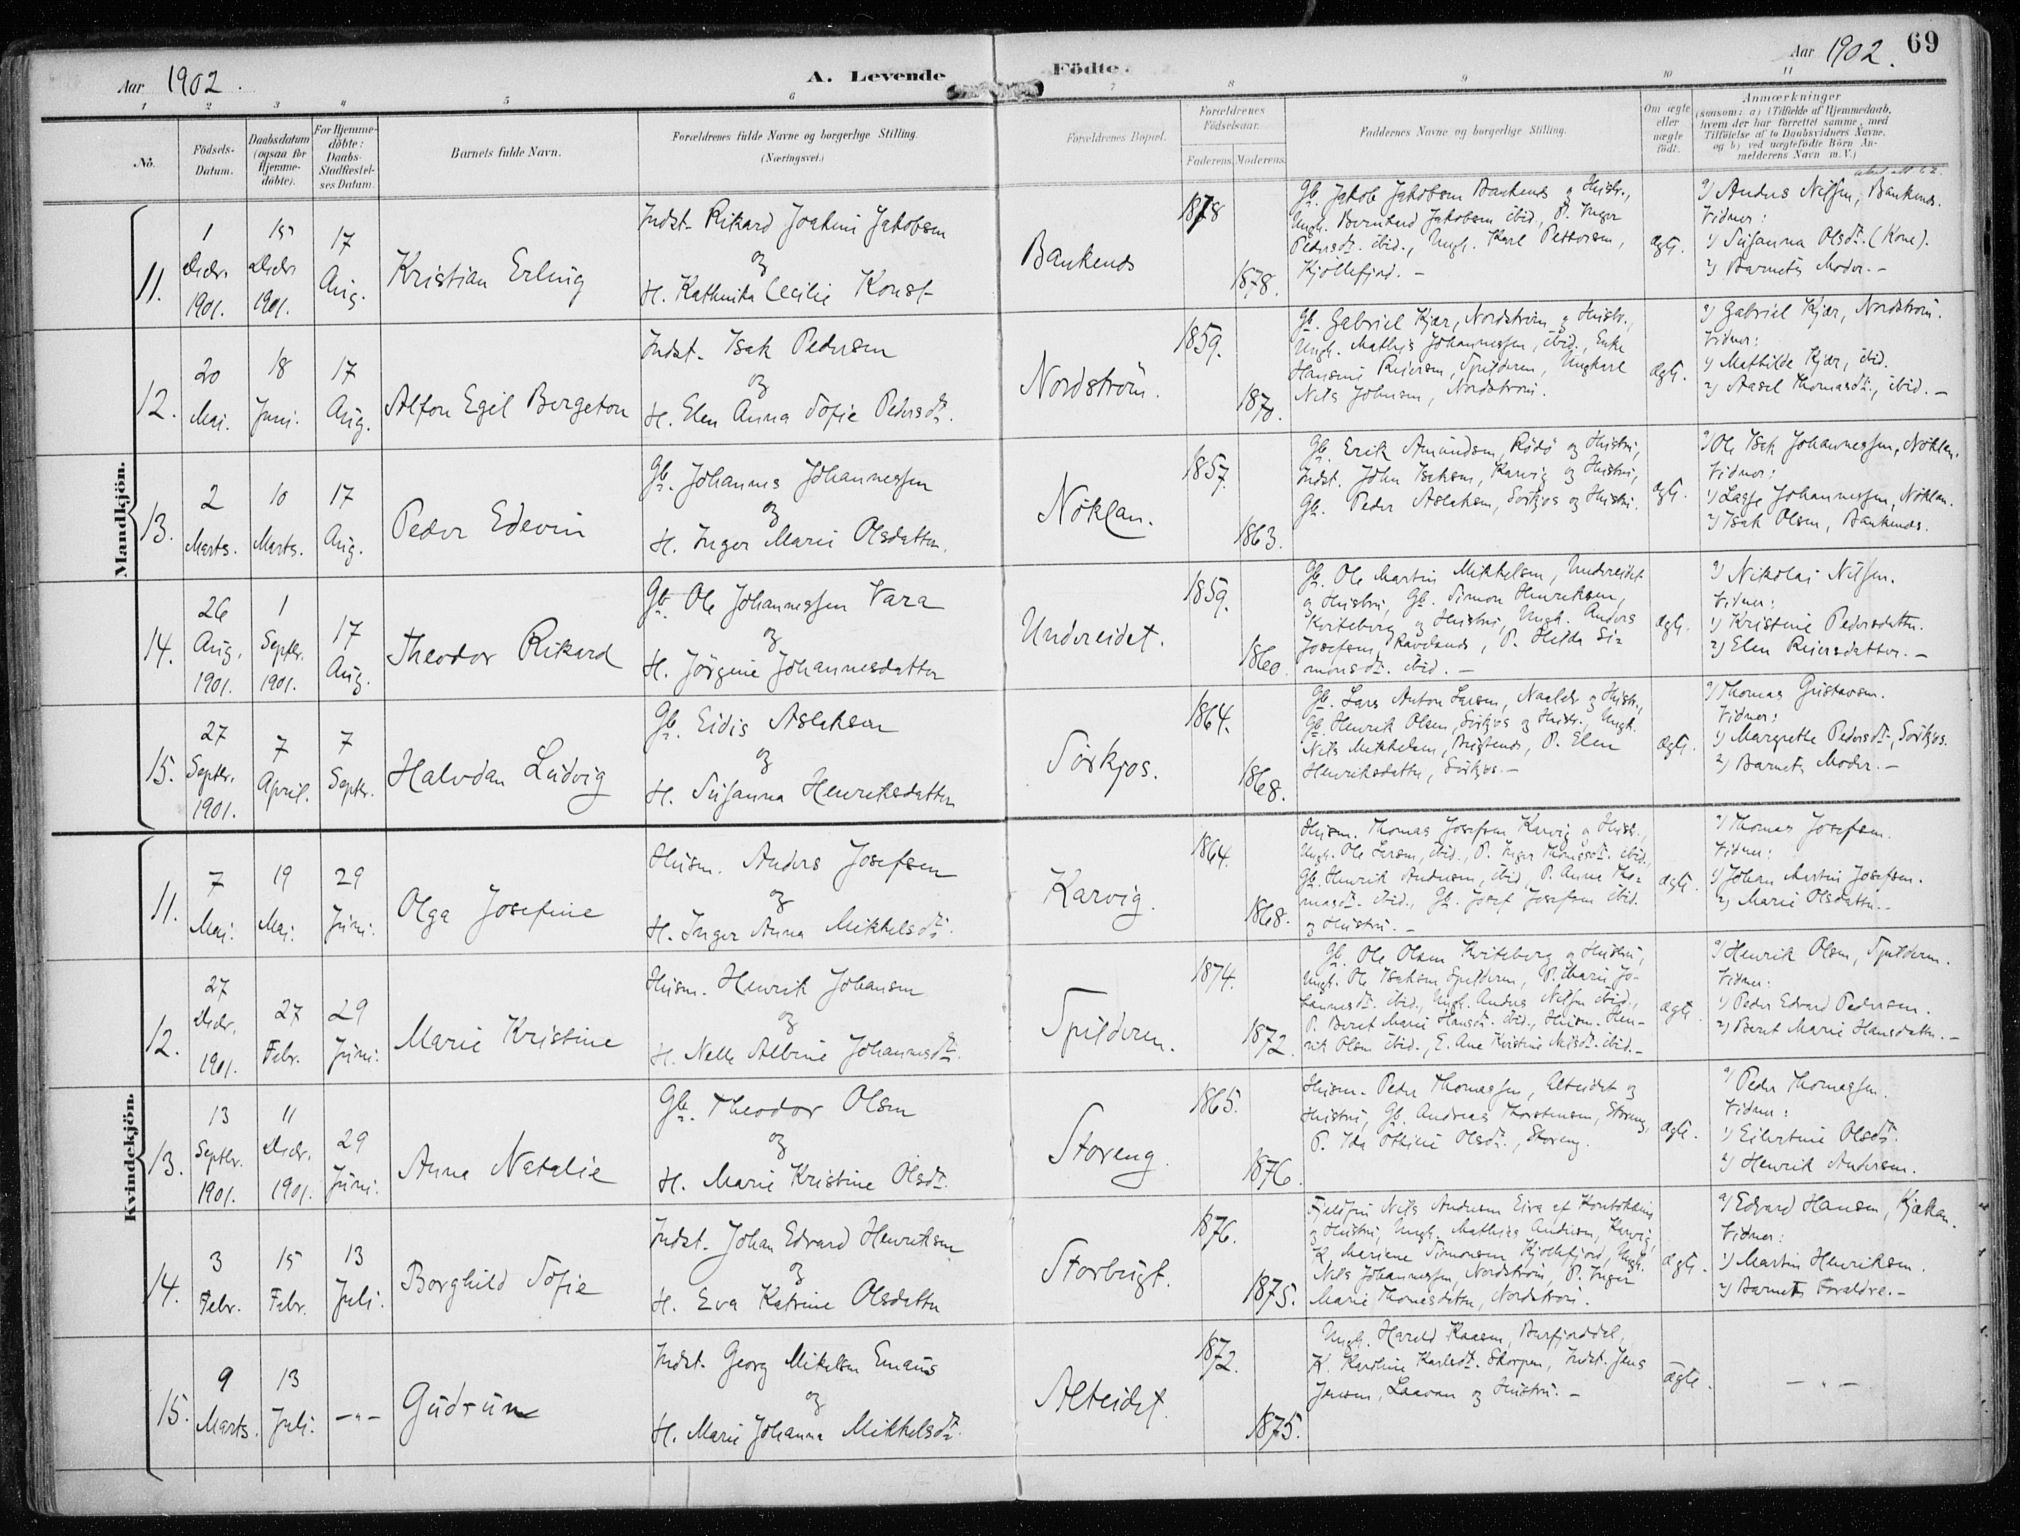 Aar 1902.
A. Levende Födte.
Aar 1902. 69
1 2 3 4 5 6 7 8 9 10 11
No.
Födsels-
Datum.
Daabsdatum
(ogsaa for
Hjemme-
döbte).
For Hjemme-
döbte:
Daabs-
Stadfæstel-
ses Datum.
Barnets fulde Navn.
Forældrenes fulde Navne og borgerlige Stilling.
(Næringsvei.)
Forældrenes Bopæl.
Forældrenes
Födselsaar.
Faderens. Moderens.
Faddernes Navne og borgerlige Stilling.
Om ægte
eller
uægte
födt.
Anmærkninger
(saasom: a) i Tilfælde af Hjemmedaab,
hvem der har forrettet samme, med
Tilföielse af to Daabsvidners Navne,
og b) ved uægtefödte Börn An-
melderens Navn m. V.)
Mandkjön.
11.
1
Decbr.
1901.
15
Decbr.
1901.
17
Aug.
Kristian Erling
Indst. Rikard Joakim Jakobsen
og
H. Kathrika Cecilie Konst-
Bankenes
1878
1878.
Gb. Jakob Jakobsen Bankenes og Hustr.,
Ungk. Bernhard Jakobsen ibid., P. Inger
Pedersdt. ibid., Ungk. Karl Pettersen,
Kjöllefjord. -
ægte.
a) Anders Nilsen, Bankenes.
Vidner:
1) Susanna Olsdt. (Kone).
2) Barnets Moder. -
12.
20
Mai.
18
Juni.
17
Aug.
Alfon Egil Bergeton
Indst. Isak Pedersen
og
H. Elen Anna Sofie Pedersdt.
Nordström.
1859.
1870.
Gb. Gabriel Kjær, Nordström og Hustr.,
Ungk. Mathis Johannessen, ibid., Enke
Hansine Reiersen, Spilderen, Ungkarl
Nils Johnsen, Nordström.
ægte.
a) Gabriel Kjær, Nordström.
Vidner:
1) Mathilde Kjær, ibid.
2) Aasel Thomasdt., ibid. -
13.
2
Marts.
10
Marts.
17
Aug.
Peder Edevin
Gb. Johannes Johannessen
og
H. Inger Marie Olsdatter.
Nöklan.
1857.
1863.
Gb. Erik Amundsen, Rödö og Hustru,
Indst. John Isaksen, Karvig og Hustru,
Gb. Peder Aslaksen, Sörkjos og Hustru.
ægte.
a) Ole Isak Johannessen, Nöklan.
Vidner:
1) Lasse Johannessen, Nöklan.
2) Isak Olsen, Bankenes.
14.
26
Aug.
1901.
1
Septbr.
1901.
17
Aug.
Theodor Rikard
Gb. Ole Johannessen Vara
og
H. Jörgine Johannesdatter
Undereidet.
1859.
1860.
Gb. Ole Martin Mikkelsen, Undereidet
og Hustru, Gb. Simon Henriksen,
Kviteberg og Hustru, Ungk. Anders
Josefsen, Ravelsnes, P. Hilda Si-
monsdt. ibid. -
ægte.
a) Nikolai Nilsen.
Vidner:
1) Kristine Pedersdatter.
2) Elen Reiersdatter. -
15.
27
Septbr.
1901.
7
April.
7
Septbr.
Halvdan Ludvig
Gb. Eidis Aslaksen
og
H. Susanna Henriksdatter
Sörkjos.
1864.
1868.
Gb. Lars Anton Larsen, og Hustr.,
Gb. Henrik Olsen, Sörkjos og Hustr., Ungk.
Nils Mikkelsen, P. Elen
Henriksdatter, Sörkjos. -
ægte.
a) Thomas Gustavsen.
Vidner:
1) Margrethe Pedersdt., Sörkjos.
2) Barnets Moder. -
Kvindekjön.
11.
7
Mai.
19
Mai.
29
Juni.
Olga Josefine
Husm. Anders Josefsen
og
H. Inger Anna Mikkelsdt.
Karvig.
1864.
1868.
Husm. Thomas Josefsen Karvig og Hustr.,
Ungk. Ole Larsen, ibid., P. Inger Thomasdt. ibid.,
Gb. Henrik Andersen, ibid., P. Anna Tho-
masdt. ibid., Gb. Josef Josefsen ibid.
og Hustru. -
ægte.
a) Thomas Josefsen.
Vidner:
1) Johan Martin Josefsen.
2) Marie Olsdatter. -
12.
27
Decbr.
1901.
27
Febr.
29
Juni.
Marie Kristine
Husm. Henrik Johansen
og
H. Nella Albine Johannesdt.
Spilderen.
1874.
1872.
Gb. Ole Olsen Kviteberg og Hustru,
Ungk. Ole Isaksen Spilderen, P. Marie Jo-
hannesdt. ibid., Ungk. Anders Nilsen ibid.,
P. Beret Marie Hansdt. ibid., Husm. Hen-
rik Olsen ibid., E. Ane Kristine Nilsdt. ibid. -
ægte.
a) Henrik Olsen, Spilderen.
Vidner:
1) Peder Edvard Pedersen.
2) Beret Marie Hansdatter. -
13.
13
Septbr.
1901.
11
Decbr.
1901.
29
Juni.
Anna Natalie
Gb. Theodor Olsen
og
H. Marie Kristine Olsdt.
Storeng.
1865.
1876.
Husm. Peder Thomassen, Alteidet og
Hustru, Gb. Andreas Thorstensen, Storeng,
P. Ida Othine Olsdt., Storeng.
ægte.
a) Peder Thomassen.
Vidner:
1) Eilertine Olsdt.
2) Henrik Andersen.
14.
3
Febr.
15
Febr.
13
Juli.
Borghild Sofie
Indst. Johan Edvard Henriksen
og
H. Eva Katrine Olsdatter
Storbugt.
1876.
1875.
Fjeldfin Nils Andersen Eira af Koutokeino
og Hustru, Ungk. Mathias Andersen, Karvig,
K. Mariene Simonsen, Kjöllefjord, Ungk.
Nils Johannessen, Nordström, P. Inger
Marie Thomasdatter, Nordström.
ægte.
a) Edvard Hansen, Kjækan.
Vidner:
1) Martin Henriksen.
2) Barnets Forældre. -
15.
9
Marts.
13
Juli.
-"-
Gudrun
Indst. Georg Mikelsen Emaus
og
H. Marie Johanna Mikkelsdt.
Alteidet.
1872.
1875.
Ungk. Harald Kaasen, Burfjorddal,
K. Karoline Karlsdt. Skorpen, Indst. Jens
Jensen, Laavan og Hustru. -
ægte.
- " -